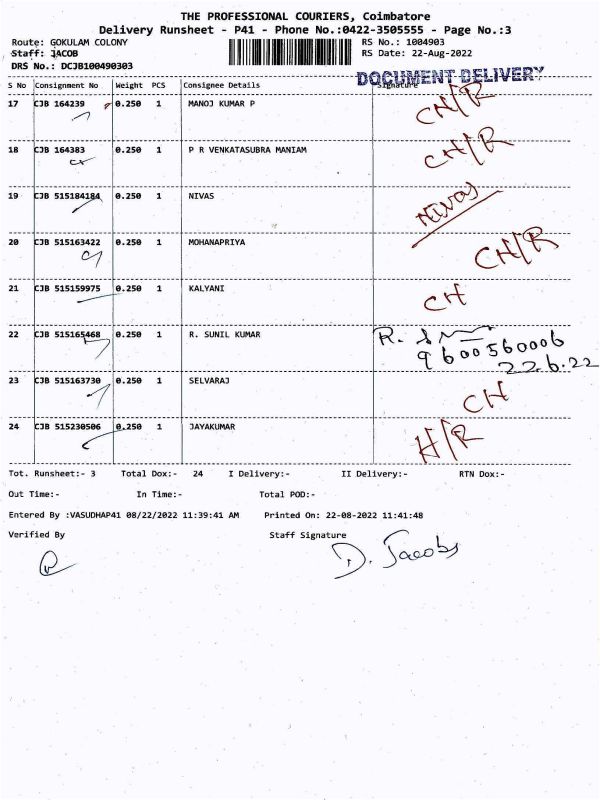 THE PROFESSIONAL COURIERS, Coimbatore
Delivery Runsheet - P41 - Phone No.:0422-3505555 - Page No.:3
Route: GOKULAM COLONY RS No.: 1004903
Staff: JACOB RS Date: 22-Aug-2022
DRS No.: DCJB100490303
DOCUMENT DELIVERY
S No Consignment No Weight PCS Consignee Details Signature
17 CJB 164239 0.250 1 MANOJ KUMAR P CH/R
18 CJB 164383 0.250 1 P R VENKATASUBRA MANIAM CH/R
19 CJB 515184184 0.250 1 NIVAS Nivas
20 CJB 515163422 0.250 1 MOHANAPRIYA CH/R
21 CJB 515159975 0.250 1 KALYANI CH
22 CJB 515165468 0.250 1 R. SUNIL KUMAR R.
9600560006
22.6.22
23 CJB 515163730 0.250 1 SELVARAJ CH
24 CJB 515230506 0.250 1 JAYAKUMAR H/R
Tot. Runsheet:- 3 Total Dox:- 24 I Delivery:- II Delivery:- RTN Dox:-
Out Time:- In Time:- Total POD:-
Entered By :VASUDHAP41 08/22/2022 11:39:41 AM Printed On: 22-08-2022 11:41:48
Verified By Staff Signature
D. Jacobs